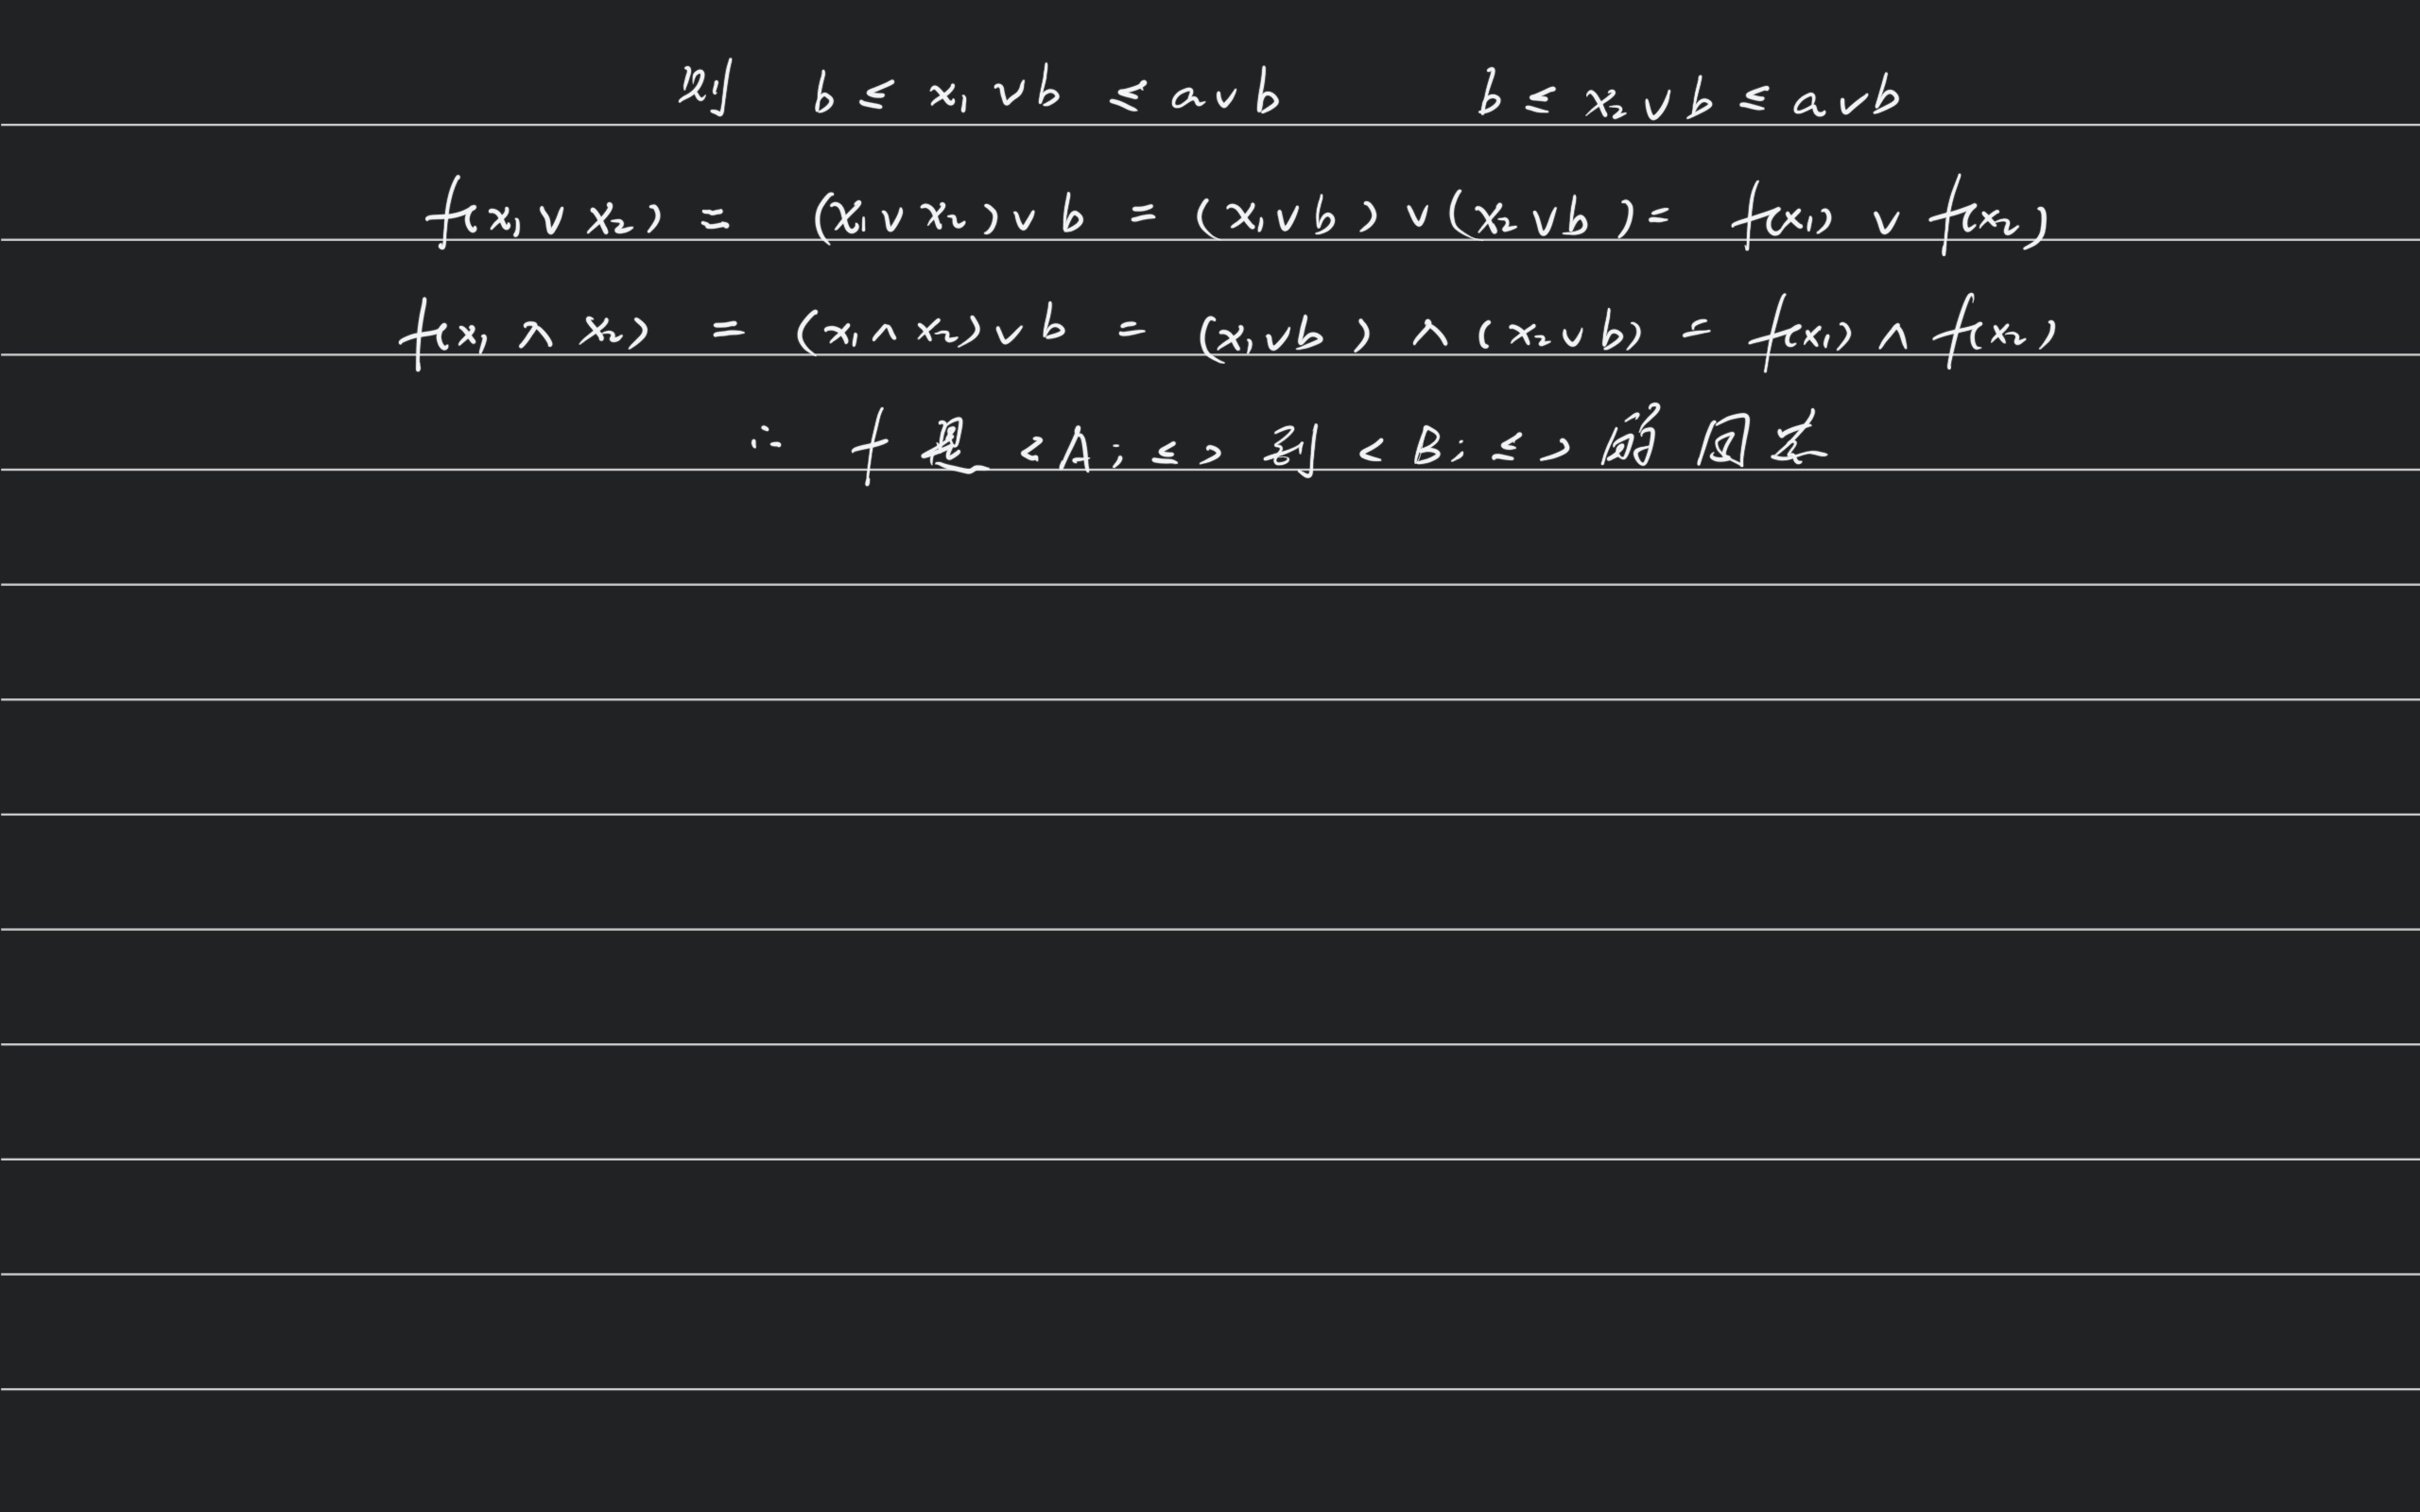 则 b ≤ x₁ ∨ b ≤ a ∨ b b ≤ x₂ ∨ b ≤ a ∨ b
f(x₁ ∨ x₂) = (x₁ ∨ x₂) ∨ b = (x₁ ∨ b) ∨ (x₂ ∨ b) = f(x₁) ∨ f(x₂)
f(x₁ ∧ x₂) = (x₁ ∧ x₂) ∨ b = (x₁ ∨ b) ∧ (x₂ ∨ b) = f(x₁) ∧ f(x₂)
∴ f 是 <A; ≤> 到 <B; ≤> 的 同态